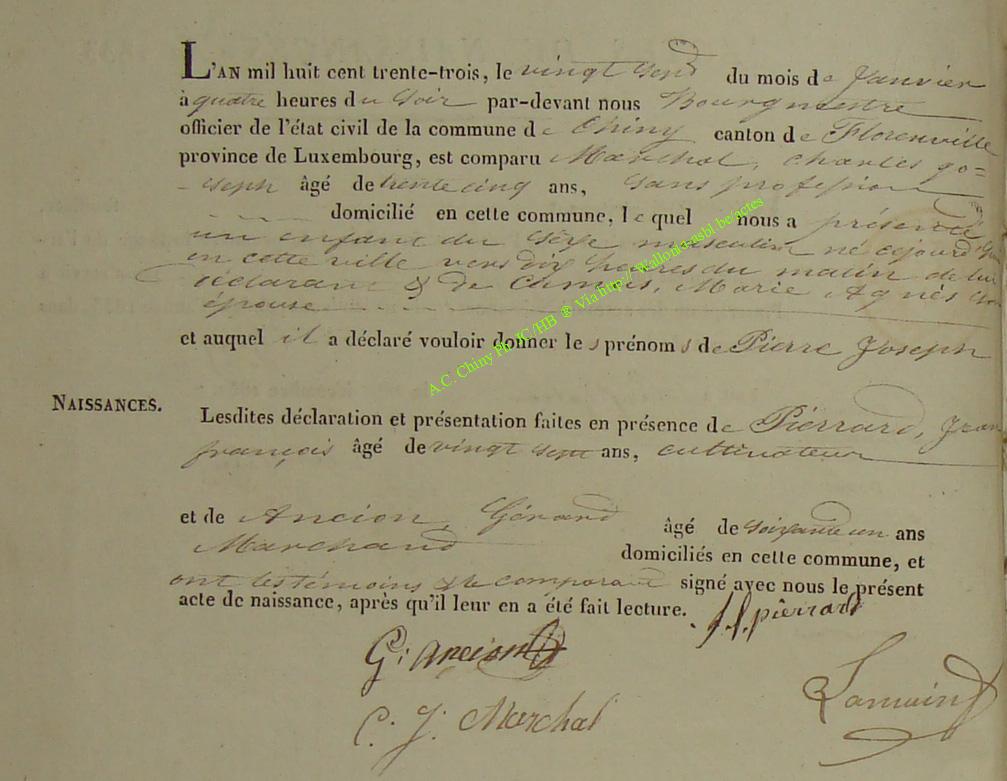 L'AN mil huit cent trente-trois, le vingt sept du mois de Janvier
à quatre heures du soir par-devant nous Bourgmestre
officier de l'état civil de la commune de Chiny canton de Florenville
province de Luxembourg, est comparu Marchal, Charles Jo=
=seph âgé de trente cinq ans, sans profession
domicilié en cette commune, lequel nous a présenté
un enfant du sexe masculin né aujourd'hui
en cette ville vers dix heures du matin de lui
déclarant & de Marie Agnès
épouse
et auquel il a déclaré vouloir donner les prénoms de Pierre Joseph
NAISSANCES.
Lesdites déclaration et présentation faites en présence de Piérrard, Jean
françois âgé de vingt sept ans, cultivateur
et de Ancion, Gérard âgé de soixante un ans
Marchand domiciliés en cette commune, et
ont les témoins & le comparant signé avec nous le présent
acte de naissance, après qu'il leur en a été fait lecture. J. f. piêrrard
G: Ancion
C. J. Marchal
A.C. Chiny Ph JC/HB ® Via http://Wallonia-asbl.be/actes